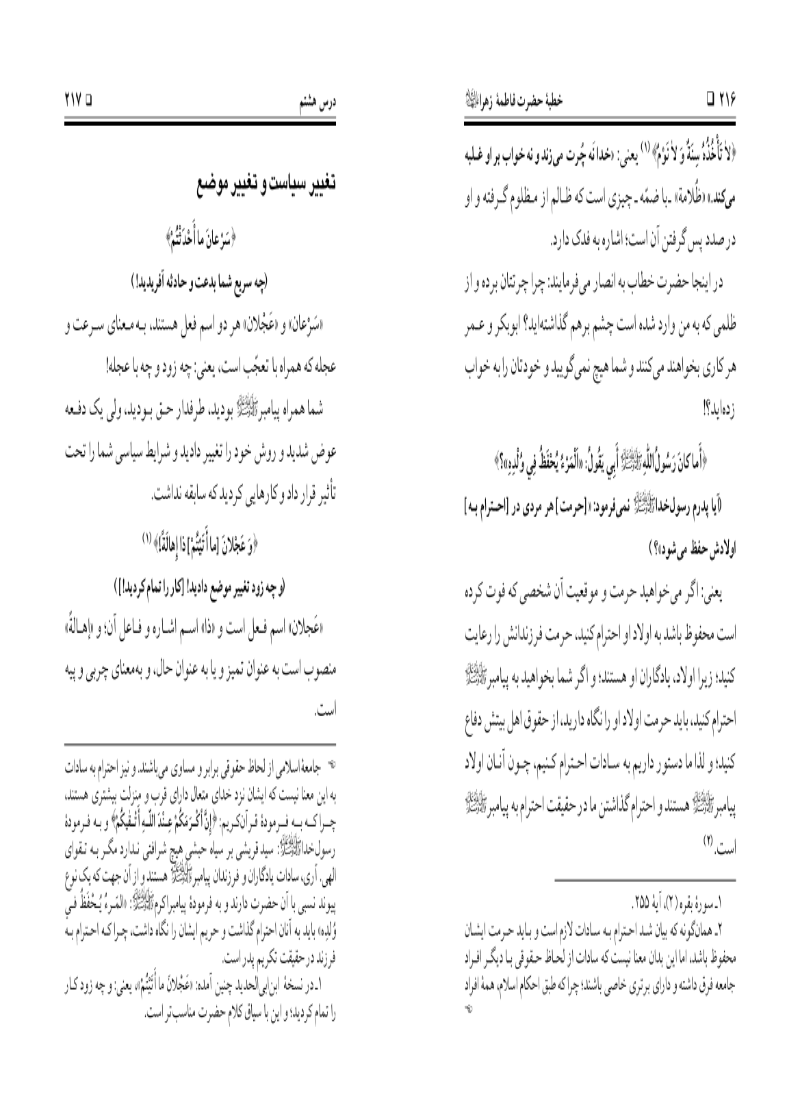 ۲۱۶ □ خطبهٔ حضرت فاطمهٔ زهراﷺ
﴿لاٰ تَأْخُذُهُ سِنَةٌ وَ لاٰ نَوْمٌ﴾(۱) یعنی: «خدا نه چُرت می‌زند و نه خواب بر او غلبه
می‌کند.» «ظُلامة» ـ با ضمّه ـ چیزی است که ظالم از مظلوم گرفته و او
در صدد پس گرفتن آن است؛ اشاره به فدک دارد.
در اینجا حضرت خطاب به انصار می‌فرمایند: چرا چرتتان برده و از
ظلمی که به من وارد شده است چشم برهم گذاشته‌اید؟ ابوبکر و عمر
هر کاری بخواهند می‌کنند و شما هیچ نمی‌گویید و خودتان را به خواب
زده‌اید؟!
﴿أَما كانَ رَسُولُ‌اللهِﷺ أَبِي يَقُولُ: «اَلْمَرْءُ يُحْفَظُ فِي وُلْدِهِ»؟﴾
(آیا پدرم رسول‌خداﷺ نمی‌فرمود: «[حرمت] هر مردی در [احترام به]
اولادش حفظ می‌شود»؟)
یعنی: اگر می‌خواهید حرمت و موقعیت آن شخصی که فوت کرده
است محفوظ باشد به اولاد او احترام کنید، حرمت فرزندانش را رعایت
کنید؛ زیرا اولاد، یادگاران او هستند؛ و اگر شما بخواهید به پیامبرﷺ
احترام کنید، باید حرمت اولاد او را نگاه دارید، از حقوق اهل بیتش دفاع
کنید؛ و لذا ما دستور داریم به سادات احترام کنیم، چون آنان اولاد
پیامبرﷺ هستند و احترام گذاشتن ما در حقیقت احترام به پیامبرﷺ
است.(۲)
۱ـ سورهٔ بقره (۲)، آیهٔ ۲۵۵.
۲ـ همان‌گونه که بیان شد احترام به سادات لازم است و باید حرمت ایشان
محفوظ باشد، اما این بدان معنا نیست که سادات از لحاظ حقوقی با دیگر افراد
جامعه فرق داشته و دارای برتری خاصی باشند؛ چرا که طبق احکام اسلام، همهٔ افراد
درس هشتم □ ۲۱۷
تغییر سیاست و تغییر موضع
﴿سَرْعانَ ما أَحْدَثْتُمْ﴾
(چه سریع شما بدعت و حادثه آفریدید!)
«سَرْعان» و «عَجْلان» هر دو اسم فعل هستند، به معنای سرعت و
عجله که همراه با تعجّب است، یعنی: چه زود و چه با عجله!
شما همراه پیامبرﷺ بودید، طرفدار حق بودید، ولی یک دفعه
عوض شدید و روش خود را تغییر دادید و شرایط سیاسی شما را تحت
تأثیر قرار داد و کارهایی کردید که سابقه نداشت.
﴿وَ عَجْلانَ [ما أَتَيْتُمْ] ذا إِهالَةً!﴾(۱)
(و چه زود تغییر موضع دادید! [کار را تمام کردید!])
«عَجلان» اسم فعل است و «ذا» اسم اشاره و فاعل آن؛ و «إهالةً»
منصوب است به عنوان تمیز و یا به عنوان حال، و به‌معنای چربی و پیه
است.
☜ جامعهٔ اسلامی از لحاظ حقوقی برابر و مساوی می‌باشند. و نیز احترام به سادات
به این معنا نیست که ایشان نزد خدای متعال دارای قرب و منزلت بیشتری هستند،
چرا که به فرمودهٔ قرآن‌کریم: ﴿إِنَّ أَكْرَمَكُمْ عِنْدَ اللّهِ أَتْقٰیكُمْ﴾ و به فرمودهٔ
رسول‌خداﷺ: سید قریشی بر سیاه حبشی هیچ شرافتی ندارد مگر به تقوای
الهی. آری، سادات یادگاران و فرزندان پیامبرﷺ هستند و از آن جهت که یک نوع
پیوند نسبی با آن حضرت دارند و به فرمودهٔ پیامبراکرمﷺ: «المَرءُ یُحْفَظُ في
وُلدِه» باید به آنان احترام گذاشت و حریم ایشان را نگاه داشت، چرا که احترام به
فرزند در حقیقت تکریم پدر است.
۱ـ در نسخهٔ ابن‌ابی‌الحدید چنین آمده: «عَجْلانَ ما أَتَيْتُمْ»، یعنی: و چه زود کار
را تمام کردید؛ و این با سیاق کلام حضرت مناسب‌تر است.